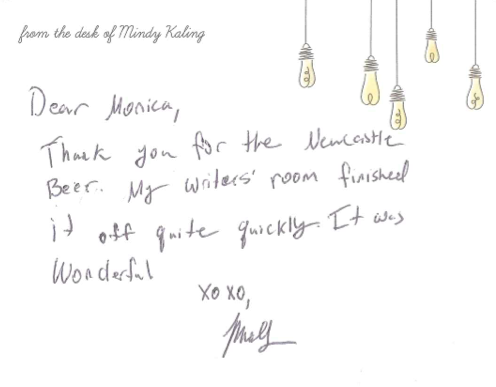 from the desk of Mindy Kaling
Dear Monica,
Thank you for the Newcastle
Beer. My writers' room finished
it off quite quickly. It was
Wonderful
XO XO,